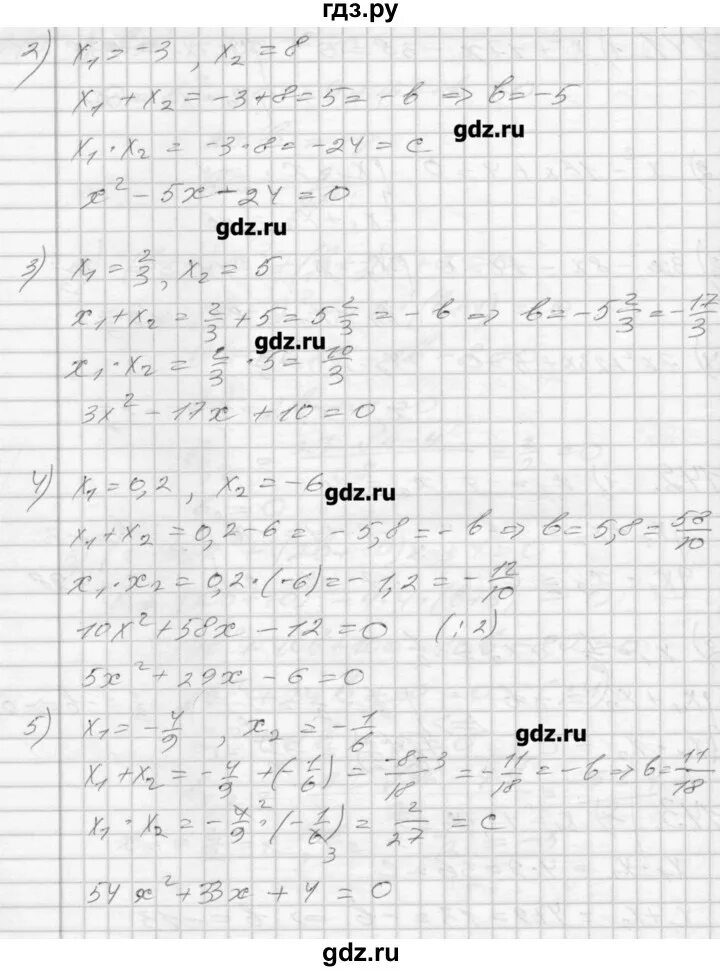 гдз.ру
2) x₁ = -3 , x₂ = 8
x₁ + x₂ = -3+8 = 5 = -b => b = -5
gdz.ru
x₁ · x₂ = -3·8 = -24 = c
x² - 5x - 24 = 0
gdz.ru
3) x₁ = 2/3, x₂ = 5
x₁+x₂ = 2/3 + 5 = 5 2/3 = -b => b = -5 2/3 = -17/3
gdz.ru
x₁·x₂ = 2/3 · 5 = 10/3
3x² - 17x + 10 = 0
4) x₁ = 0,2 , x₂ = -6
gdz.ru
x₁+x₂ = 0,2-6 = -5,8 = -b => b = 5,8 = 58/10
x₁·x₂ = 0,2·(-6) = -1,2 = -12/10
10x² + 58x - 12 = 0 (:2)
5x² + 29x - 6 = 0
5) x₁ = -4/9 , x₂ = -1/6
gdz.ru
x₁+x₂ = -4/9 + (-1/6) = -8-3/18 = -11/18 = -b => b = 11/18
x₁·x₂ = -4²/9 · (-1/6₃) = 2/27 = c
54x² + 33x + 4 = 0
gdz.ru